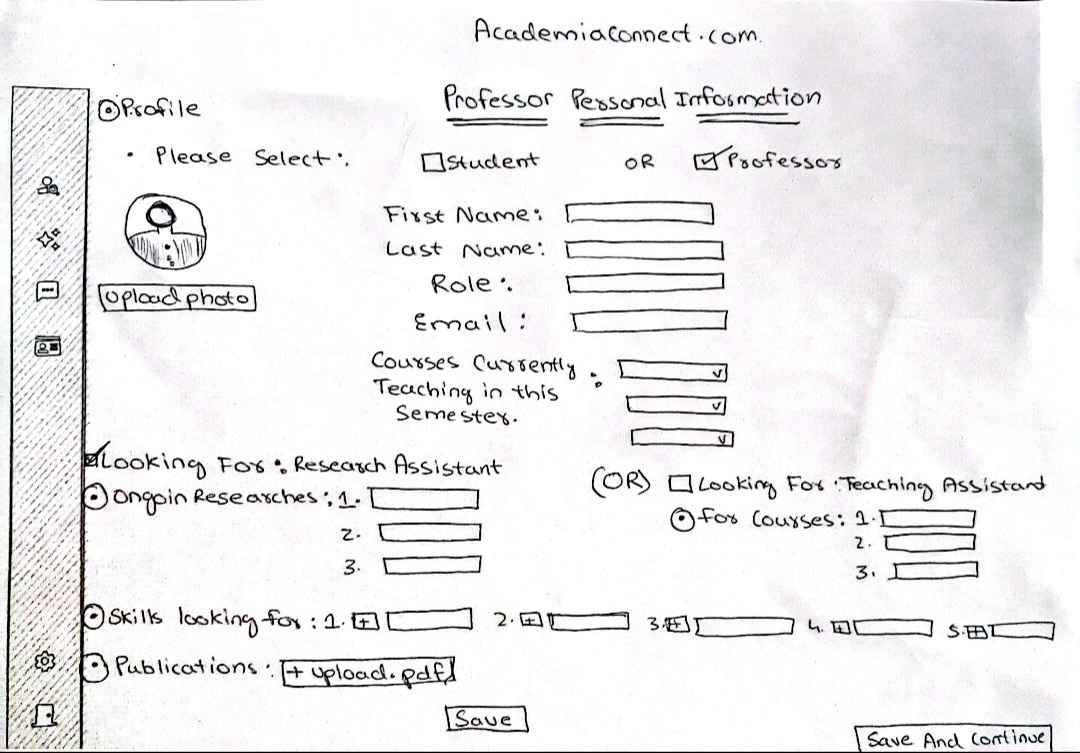 Academiaconnect.com.
Profile
Professor Personal Information
• Please Select:
Student OR Professor
First Name:
Last Name:
Role:
Upload photo
Email:
Courses Currently :
Teaching in this
Semester.
Looking For : Research Assistant
(OR) Looking For : Teaching Assistant
Ongoin Researches : 1.
2.
3.
For Courses: 1.
2.
3.
Skills looking for : 1. + 2. + 3. + 4. + 5. +
Publications : + Upload.pdf
Save
Save And Continue